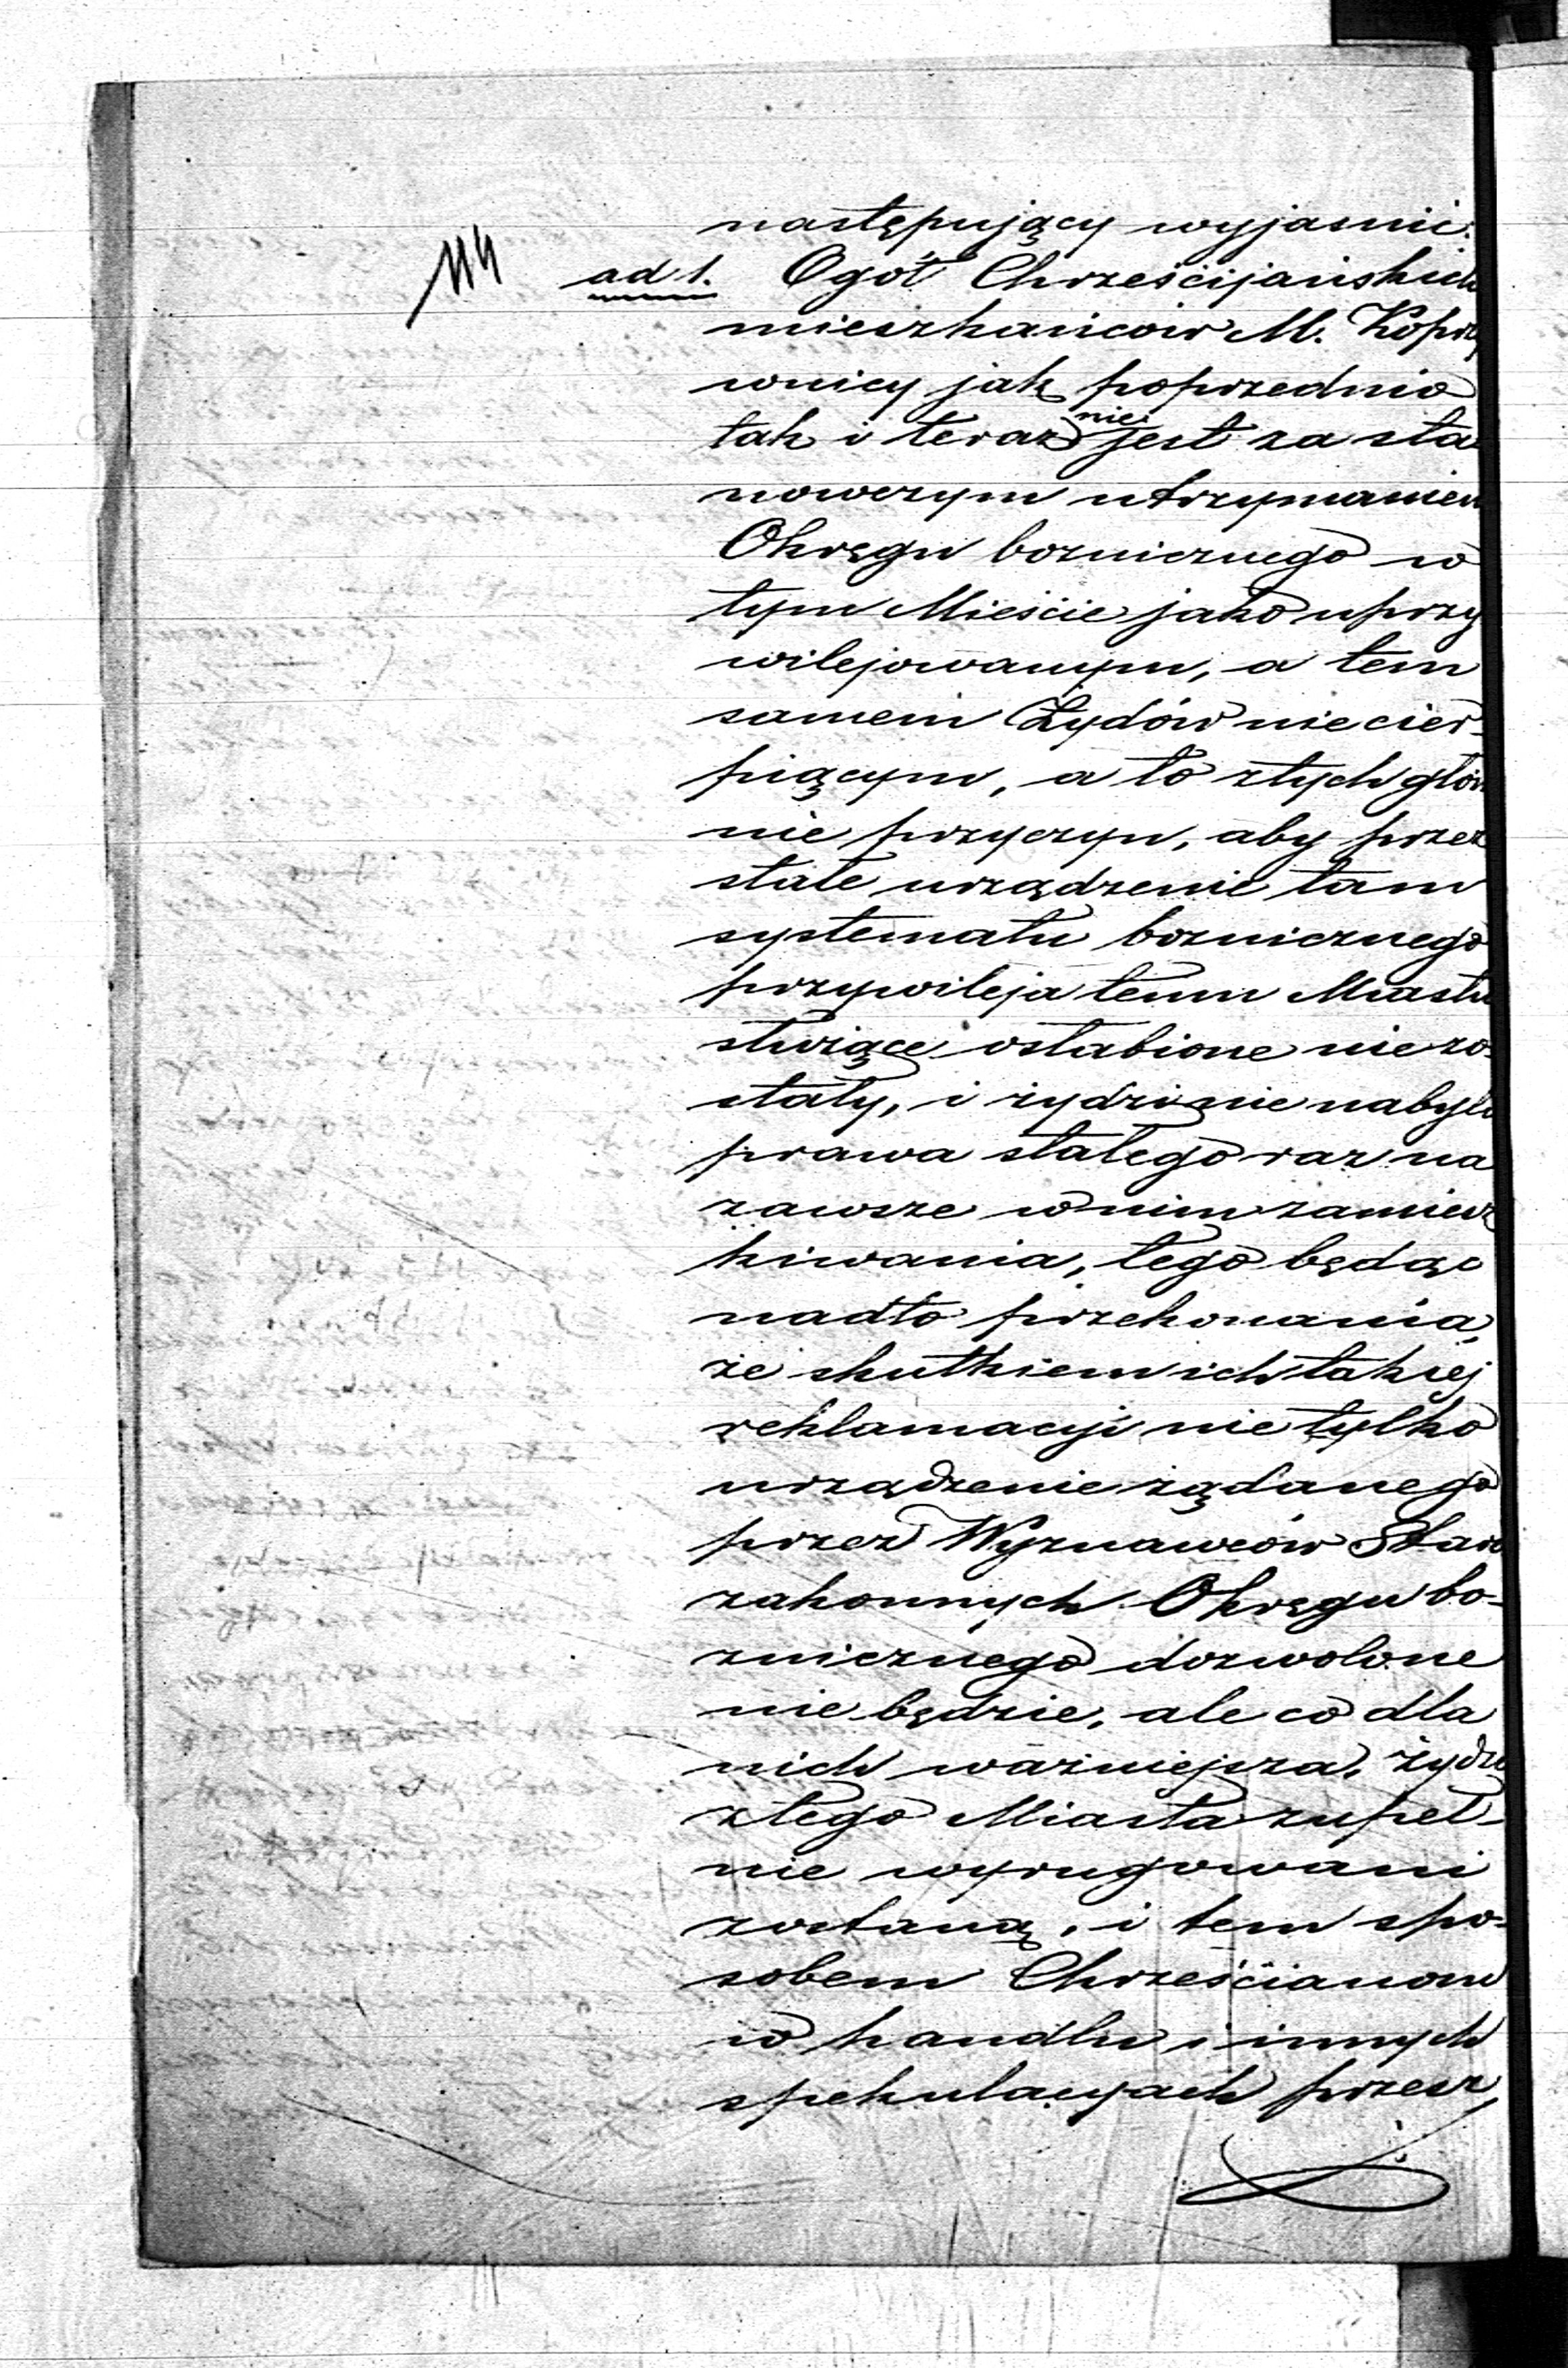 następujący wyjasnic.
ad 1. Ogół Chrześcijańskich
mieszkańców M. Koprzy
wnicy jak poprzednio
tak i teraz nie jest za sta
nowczym utrzymaniem
Okręgu bozniczego w
tym Mieście jako uprzy
wilejowanym, a tem
samem Żydów nie cier-
piącym, a to z tych głów
nie przyczyn, aby przez
stałe urządzenie tam
systematu bozniczego
przywileja temu Miastu
służące osłabione nie zo-
stały, i żydzi nie nabyli
prawa stałego raz na
zawsze w nim zamiesz
kiwania, tego będąc
nadto przekonania,
że skutkiem ich takiéj
reklamacyi nie tylko
urządzenie żądanego
przez Wyznawców Staro
zakonnych Okręgu bo-
zniczego dozwolone
nie będzie, ale co dla
nich ważniejsza, żydzi
z tego Miasta zupeł-
nie wyrugowani
zostaną, i tem spo-
sobem Chrześcianom
w handlu i innych
spekulacyach przesz